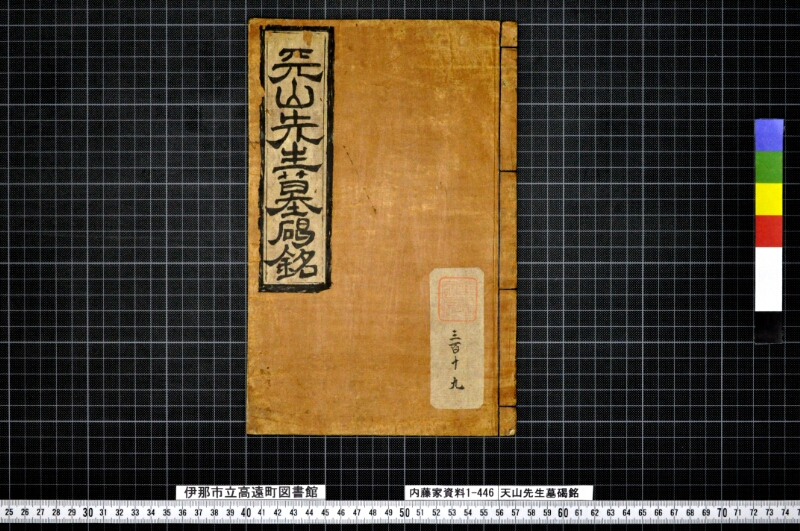 天山先生墓碣銘
三百十九
伊那市立高遠町図書館
内藤家資料1-446 天山先生墓碣銘
25 26 27 28 29 30 31 32 33 34 35 36 37 38 39 40 41 42 43 44 45 46 47 48 49 50 51 52 53 54 55 56 57 58 59 60 61 62 63 64 65 66 67 68 69 70 71 72 73 74